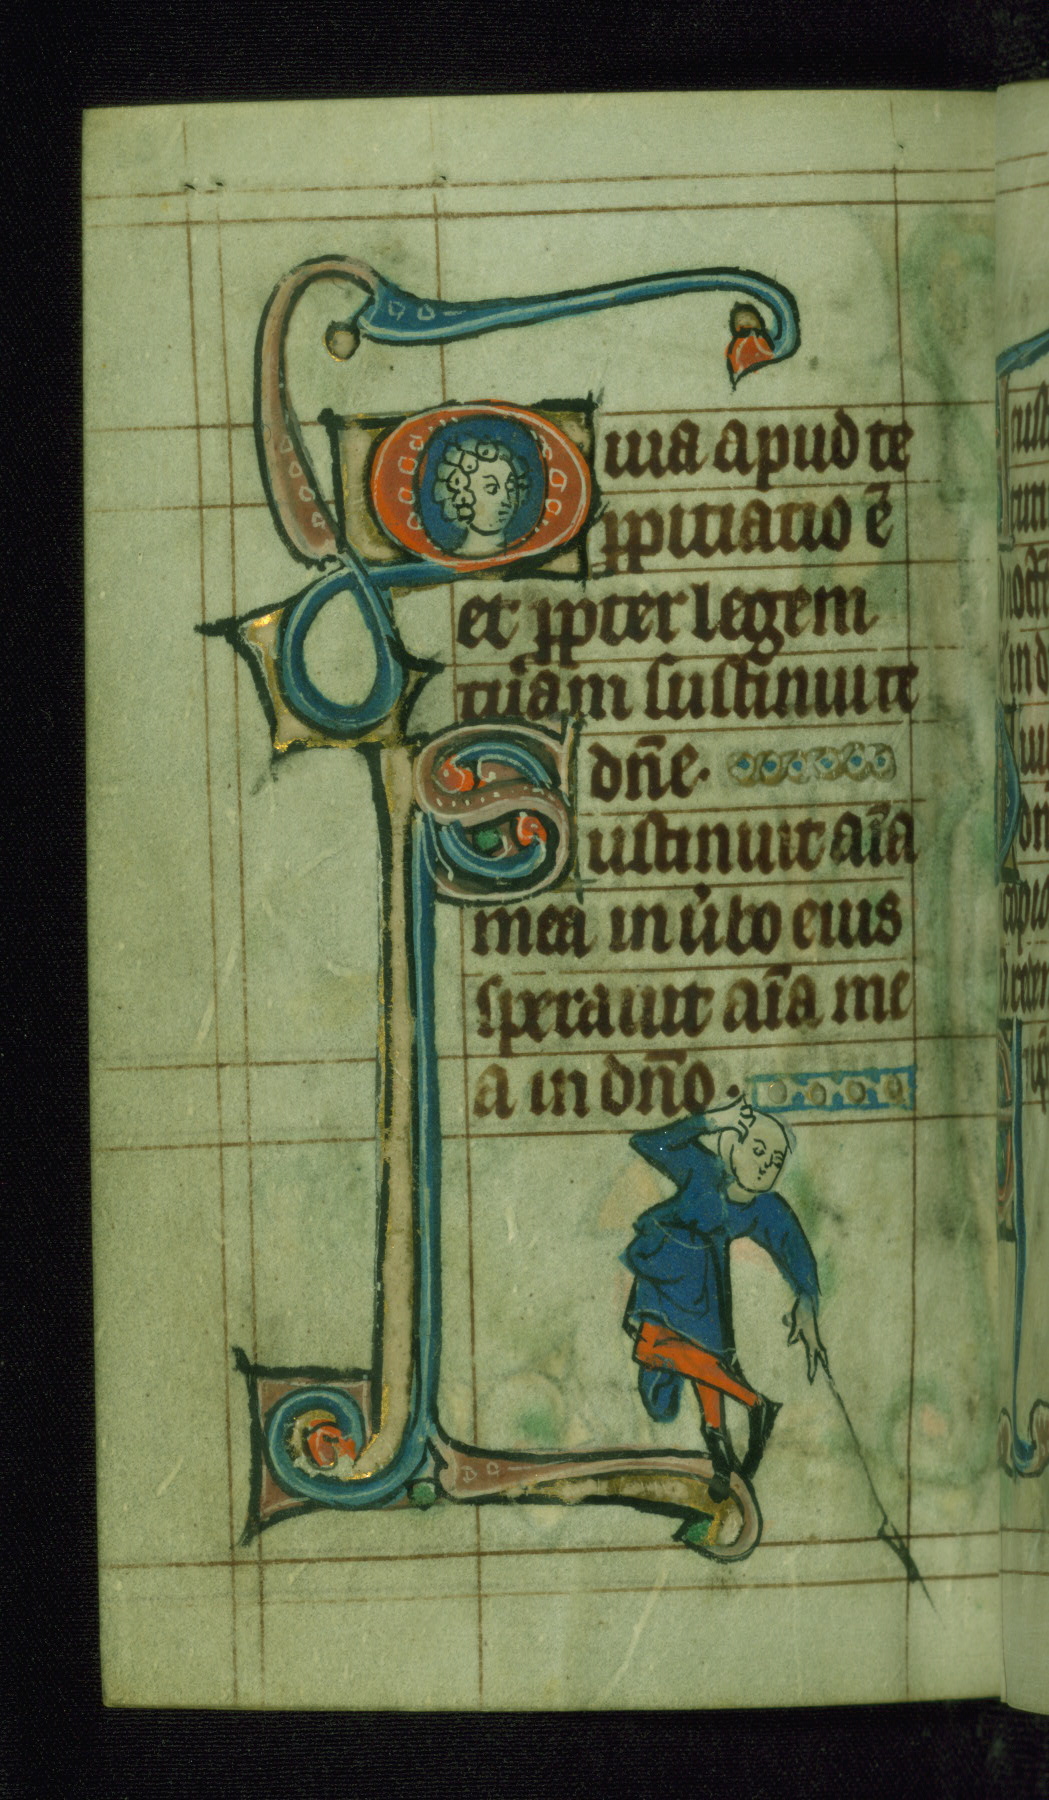 Quia apud te
ꝓpitiatio ē
et ꝓpter legem
tuam sustinui te
dn̄e.
Sustinuit aīa
mea in ũbo eius
sperauit aīa me
a in dn̄o.